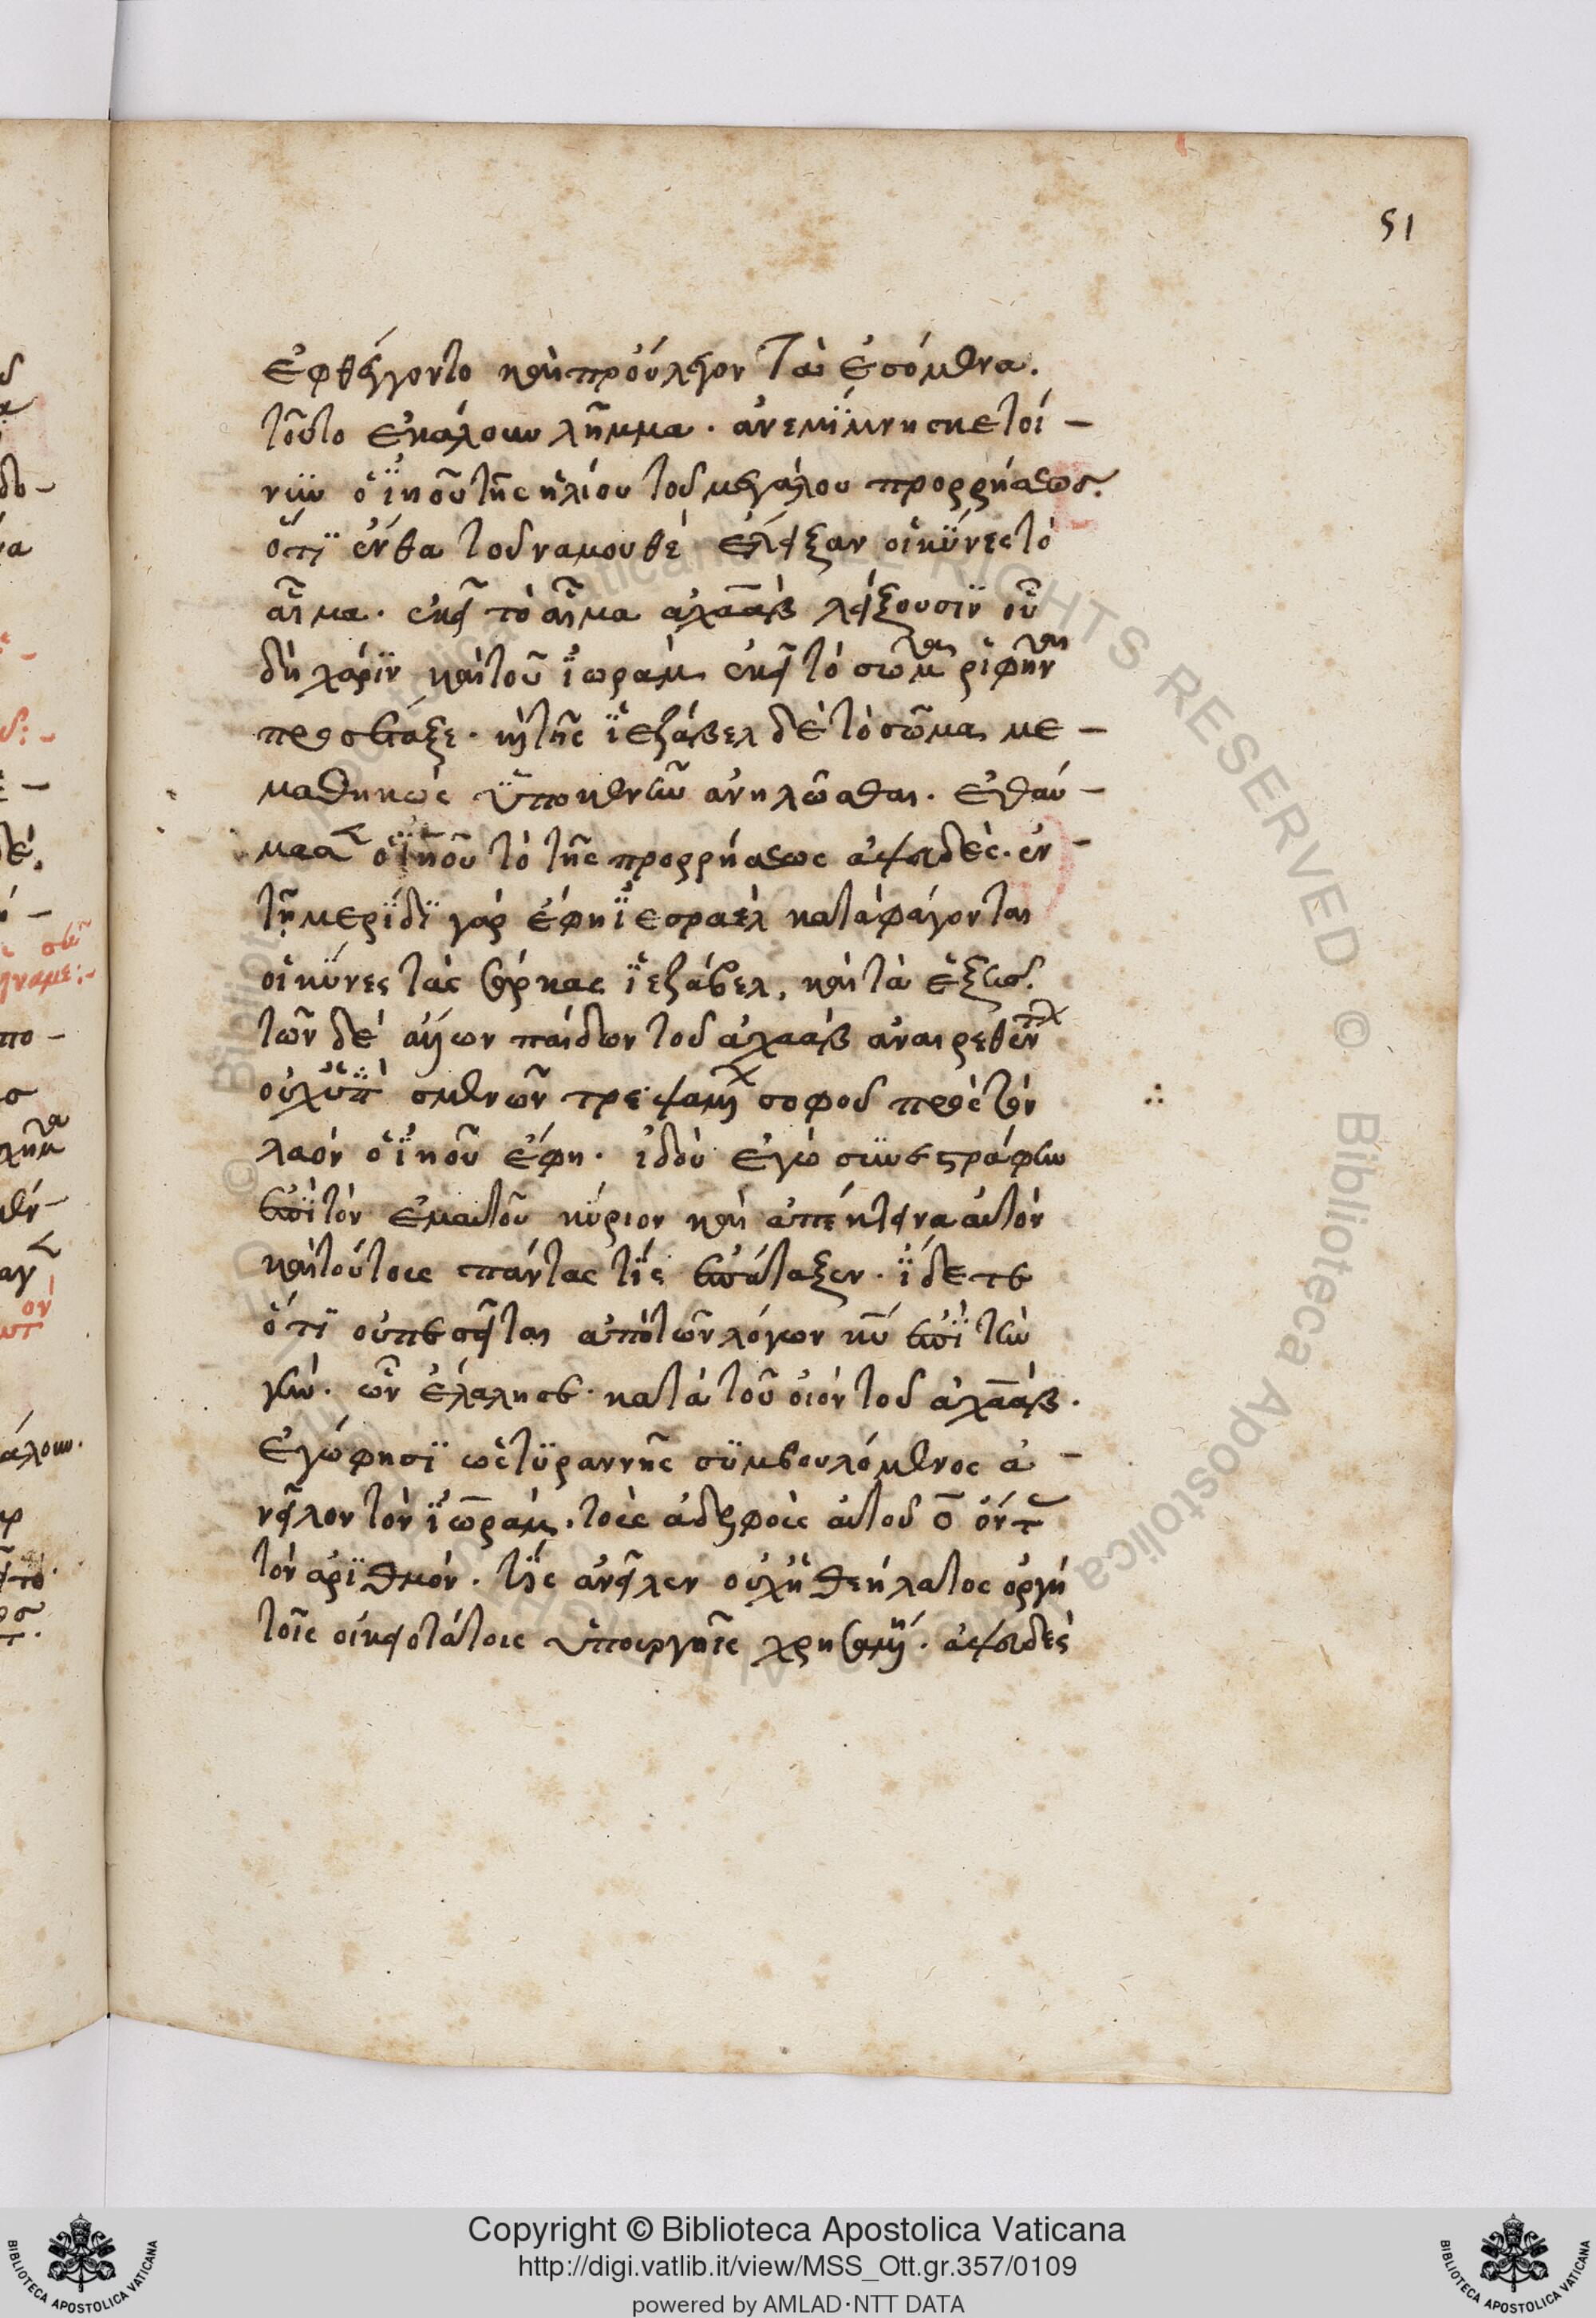 51
ἐφθέγγοντο καὶ προύλεγον τὰ ἐσόμενα.
τοῦτο ἐκάλουν λῆμμα. ἀνεμΐμνησκε τοί-
νυν ὁ ἰηοῦ τῆς ηλίου τοῦ μεγάλου προρρήσεως.
ὅτι ἔνθα τοῦ ναμουθέ ἔλειξαν οἱ κύνες τὸ
αἷμα. ἐκεῖ τὸ αἷμα αχαάβ λείξουσιν οὗ
δὴ χάριν καὶ τοῦ ἰωράμ ἐκεῖ τὸ σῶμα ριφῆναι
προσέταξε. καὶ τῆς ϊεζάβελ δὲ τὸ σῶμα με-
μαθηκὼς ὑπὸ κυνῶν ἀνηλῶσθαι. ἐθαύ-
μασε ὁ ἰηοῦ τὸ τῆς προρρήσεως ἀψευδές. ἐν
τῇ μερίδι γάρ ἔφη ϊεσραέλ καταφάγονται
οἱ κύνες τὰς σάρκας ϊεζάβελ, καὶ τὰ ἑξῆς.
τῶν δὲ ἄλλων παίδων τοῦ ἀχαάβ ἀναιρεθέντων
λαὸν ὁ ἰηοῦ ἔφη. ἰδοὺ ἐγὼ συνεστράφην
ἐπὶ τὸν ἐμαυτοῦ κύριον καὶ ἀπέκτεινα αὐτὸν
καὶ τούτοις πάντας τίς ἐπάταξεν. ἴδετε
ὅτι οὐ πεσεῖται ἀπὸ τῶν λόγων κυ ἐπὶ τὴν
γῆν. ὧν ἐλάλησε. κατὰ τοῦ οἰὸν τοῦ ἀχαάβ.
ἐγώ φησι ὡς τυραννῆς συμβουλόμενος ἀ-
νεῖλον τὸν ϊωράμ. τοὺς ἀδελφοὺς αὐτοῦ ο ὄντας
τὸν ἀριθμόν. τίς ἀνεῖλεν οὐχὴ θεήλατος ὀργή
τοῖς οἰκειοτάτοις ὑπουργοῖς χρησαμένη. ἀψευδὲς
Copyright © Biblioteca Apostolica Vaticana
http://digi.vatlib.it/view/MSS_Ott.gr.357/0109
powered by AMLAD·NTT DATA